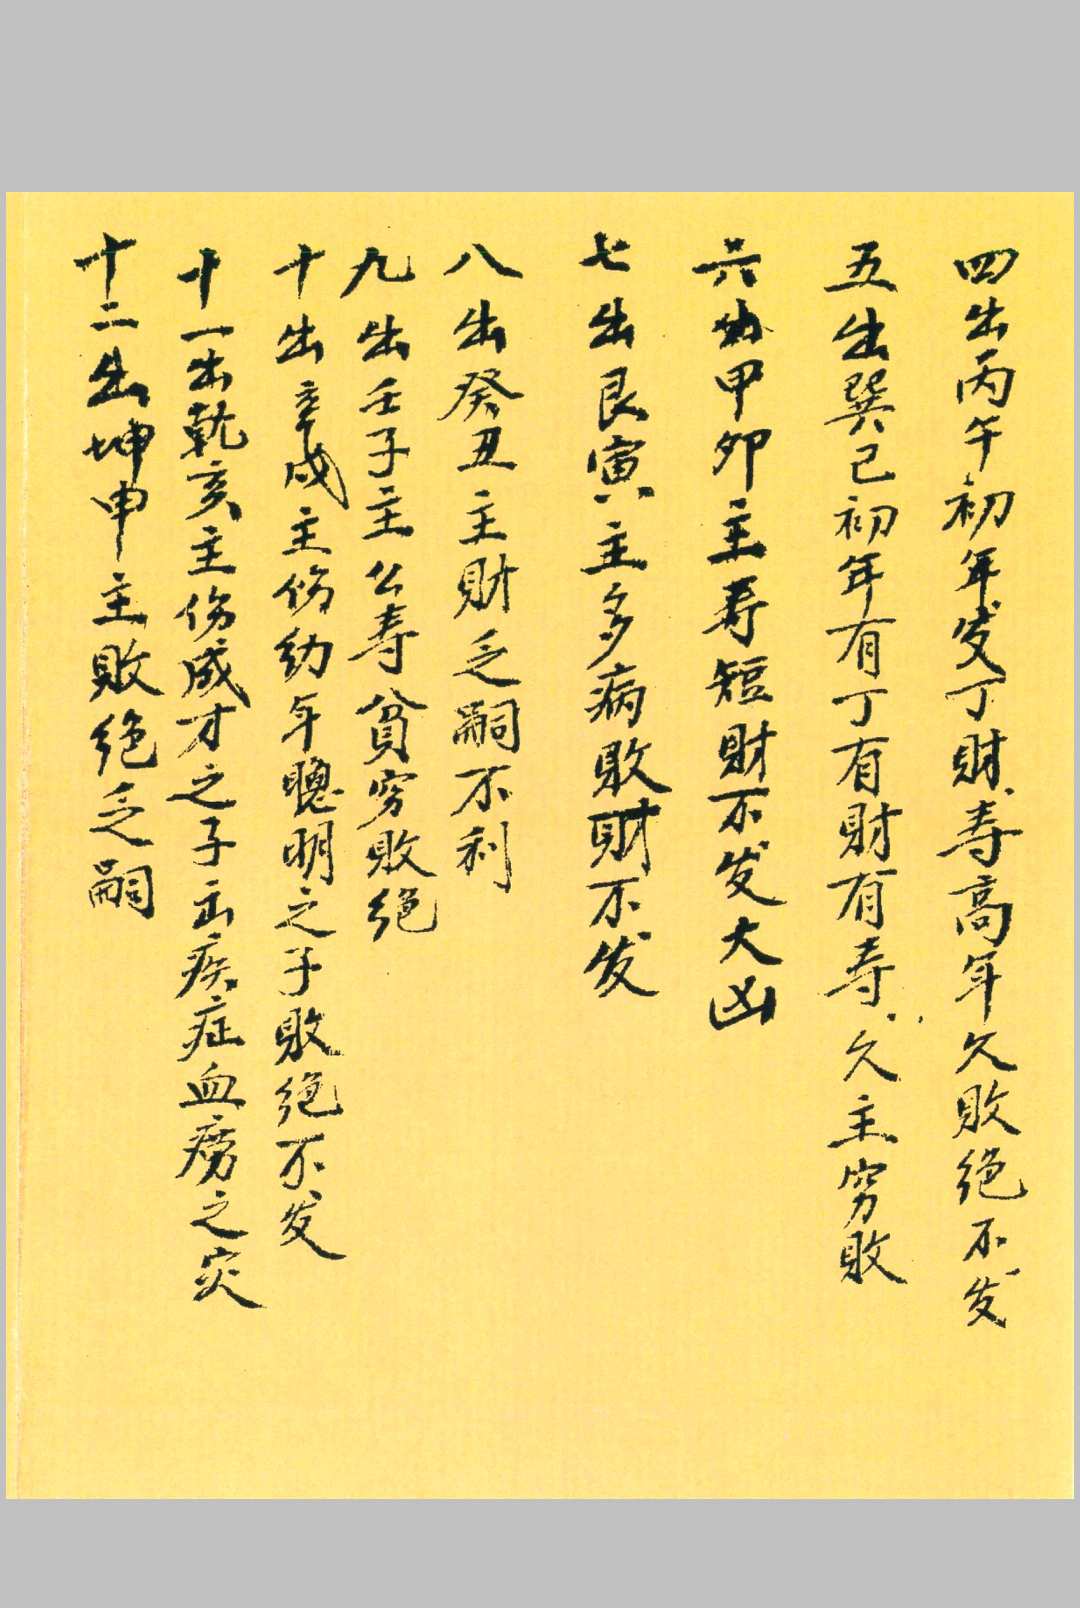 四出丙午初年发丁财寿高年久敗绝不发
五出巽巳初年有丁有财有寿久主穷敗
六出甲卯主寿短财不发大凶
七出艮寅主多病敗财不发
八出癸丑主财乏嗣不利
九出壬子主公寿貧穷敗绝
十出辛戌主伤幼年聰明之子敗绝不发
十一出乾亥主伤成才之子出疾症血痨之灾
十二出坤申主敗绝乏嗣